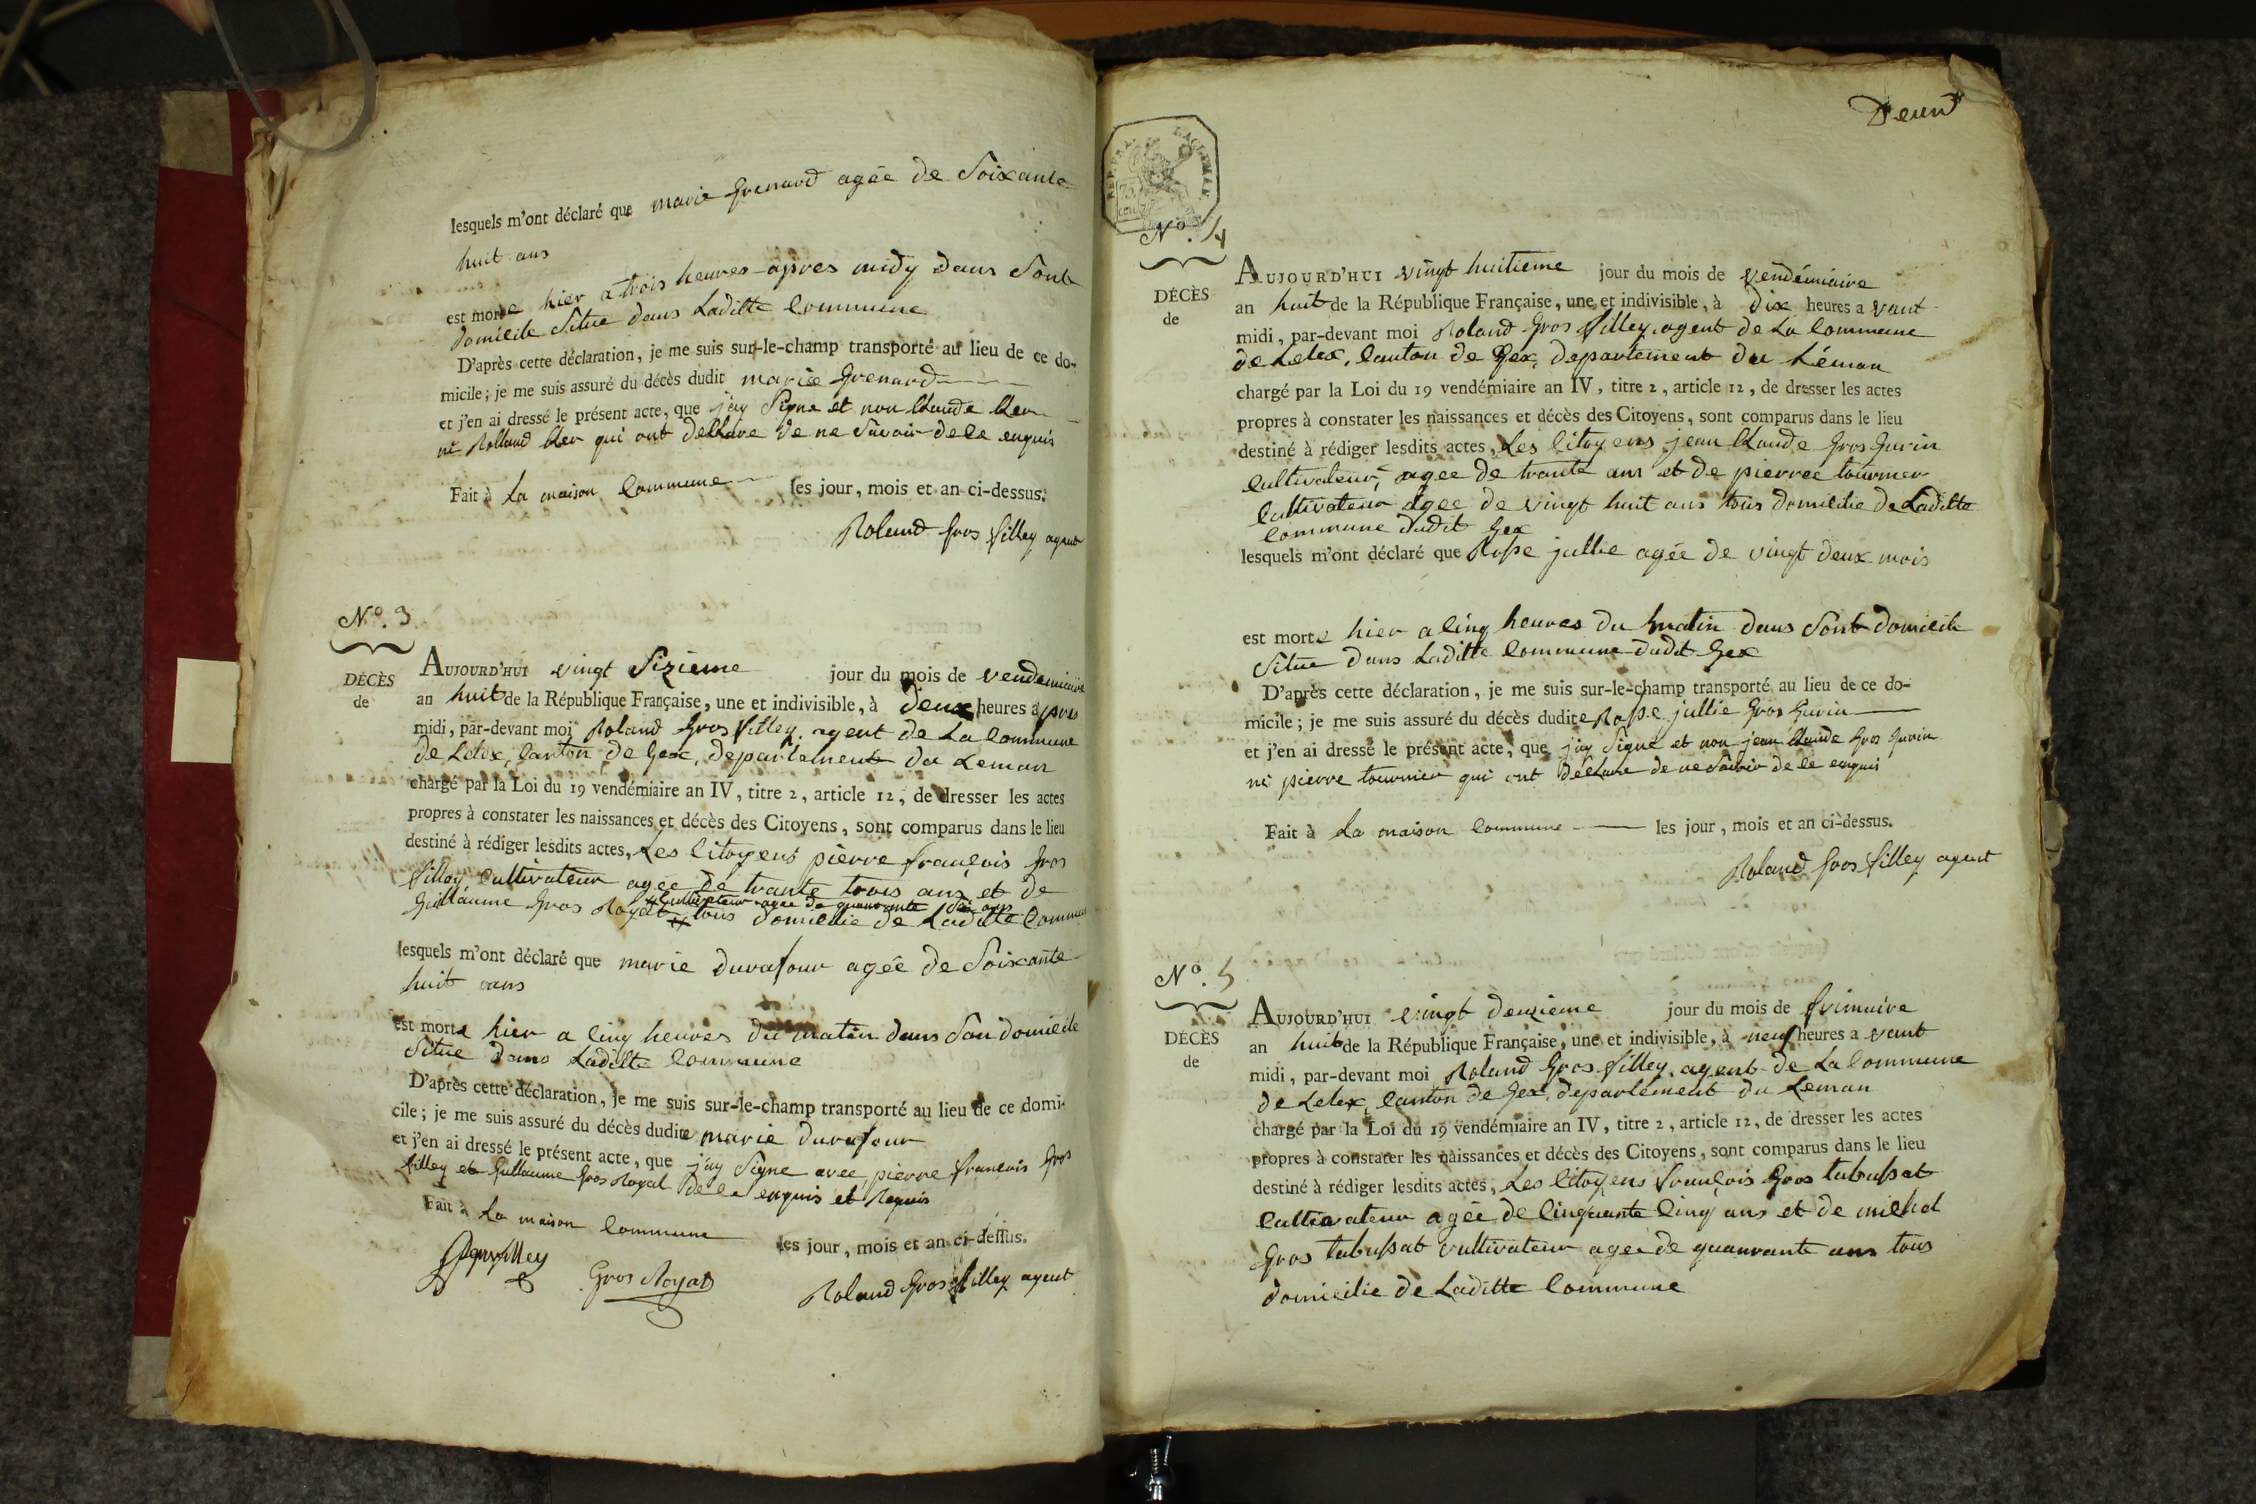 lesquels m'ont déclaré que marie Grenard agée de Soixante
huit ans
est morte hier a trois heures apres midy dans Sont
domicile Situe dans Laditte Commune
D'après cette déclaration, je me suis sur-le-champ transporté au lieu de ce do-
micile; je me suis assuré du décès dudit marie Grenard
et j'en ai dressé le présent acte, que j'ay Signe et non Claude
ni Rolland qui ont dellare de ne Savoir de le enquis
Fait à La maison Commune les jour, mois et an ci-dessus.
Roland Gros filley agent
N.º 3
DÉCÈS
de
AUJOURD'HUI vingt Sizieme jour du mois de vendemiaire
an huit de la République Française, une et indivisible, à deux heures apres
midi, par-devant moi Roland Gros filley, agent de La Commune
de Lelex, Canton de Gex, departement du Leman
chargé par la Loi du 19 vendémiaire an IV, titre 2, article 12, de dresser les actes
propres à constater les naissances et décès des Citoyens, sont comparus dans le lieu
destiné à rédiger lesdits actes, Les Citoyens pierre françois Gros
filley Cultivateur agée de trante trois ans et de
Cultivateur agee de quarante Six ans
Guillaume Gros Royat tous domicilie de Laditte Commun
lesquels m'ont déclaré que marie durafour agée de Soixante
huit ans
est morte hier a Cinq heures du matin dans Son domicile
Situe dans Laditte Commune
D'après cette déclaration, je me suis sur-le-champ transporté au lieu de ce domi-
cile; je me suis assuré du décès dudite marie durafour
et j'en ai dressé le présent acte, que j'ay Signe avec pierre françois Gros
filley et Gullaume Gros Royat de le enquis et Requis
Fait à La maison Commune les jour, mois et an ci-dessus.
Gros Royat
Roland Gros filley agent
Deux
N.º 4
DÉCÈS
de
AUJOURD'HUI vingt huitieme jour du mois de vendémiaire
an huit de la République Française, une et indivisible, à dix heures a vant
midi, par-devant moi Roland Gros filley, agent de La Commune
de Lelex, Canton de Gex, departement du Léman
chargé par la Loi du 19 vendémiaire an IV, titre 2, article 12, de dresser les actes
propres à constater les naissances et décès des Citoyens, sont comparus dans le lieu
destiné à rédiger lesdits actes, Les Citoyens jean Claude Gros Gurin
Cultivateur, agée de trante ans et de pierre tournier
Cultivateur agée de vingt huit ans tous domicilie de Laditte
Commune dudit Gex
lesquels m'ont déclaré que Rosse jullie agée de vingt deux mois
est morte hier a Cinq heures du matin dans Sont domicile
Situe dans Laditte Commune dudit Gex
D'après cette déclaration, je me suis sur-le-champ transporté au lieu de ce do-
micile; je me suis assuré du décès dudite Rosse jullie Gros Gurin
et j'en ai dressé le présent acte, que j'ay Signé et non jean Claude Gros Gurin
ni pierre tournier qui ont déclare de ne Savoir de le enquis
Fait à La maison Commune les jour, mois et an ci-dessus.
Roland Gros filley agent
N.º 5
DÉCÈS
de
AUJOURD'HUI vingt deuzieme jour du mois de frimaire
an huit de la République Française, une et indivisible, à neuf heures a vant
midi, par-devant moi Roland Gros filley, agent de La Commune
de Lelex, Canton de Gex, departement du Leman
chargé par la Loi du 19 vendémiaire an IV, titre 2, article 12, de dresser les actes
propres à constater les naissances et décès des Citoyens, sont comparus dans le lieu
destiné à rédiger lesdits actes, Les Citoyens françois Gros tabussat
Cultivateur agée de Cinquante Cinq ans et de michel
Gros tabussat cultivateur agee de quarante ans tous
domicilie de Laditte Commune